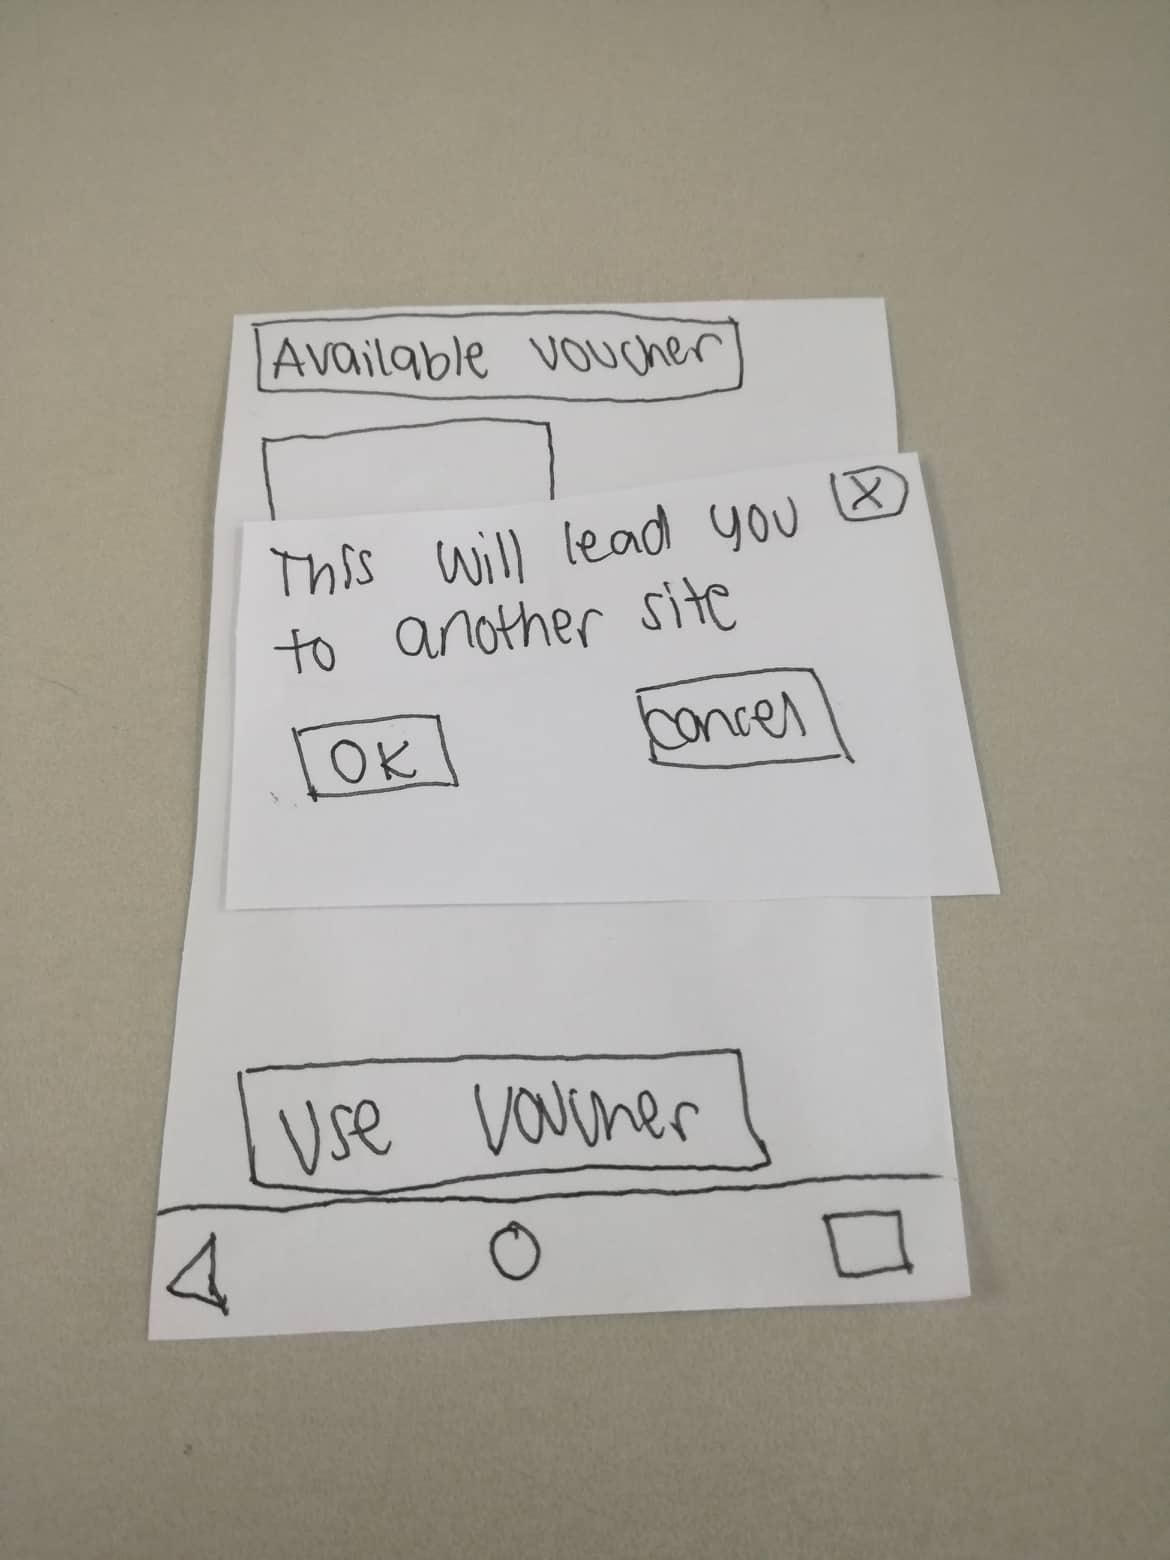 Available voucher
X
This will lead you
to another site
OK
cancel
Use Voucher